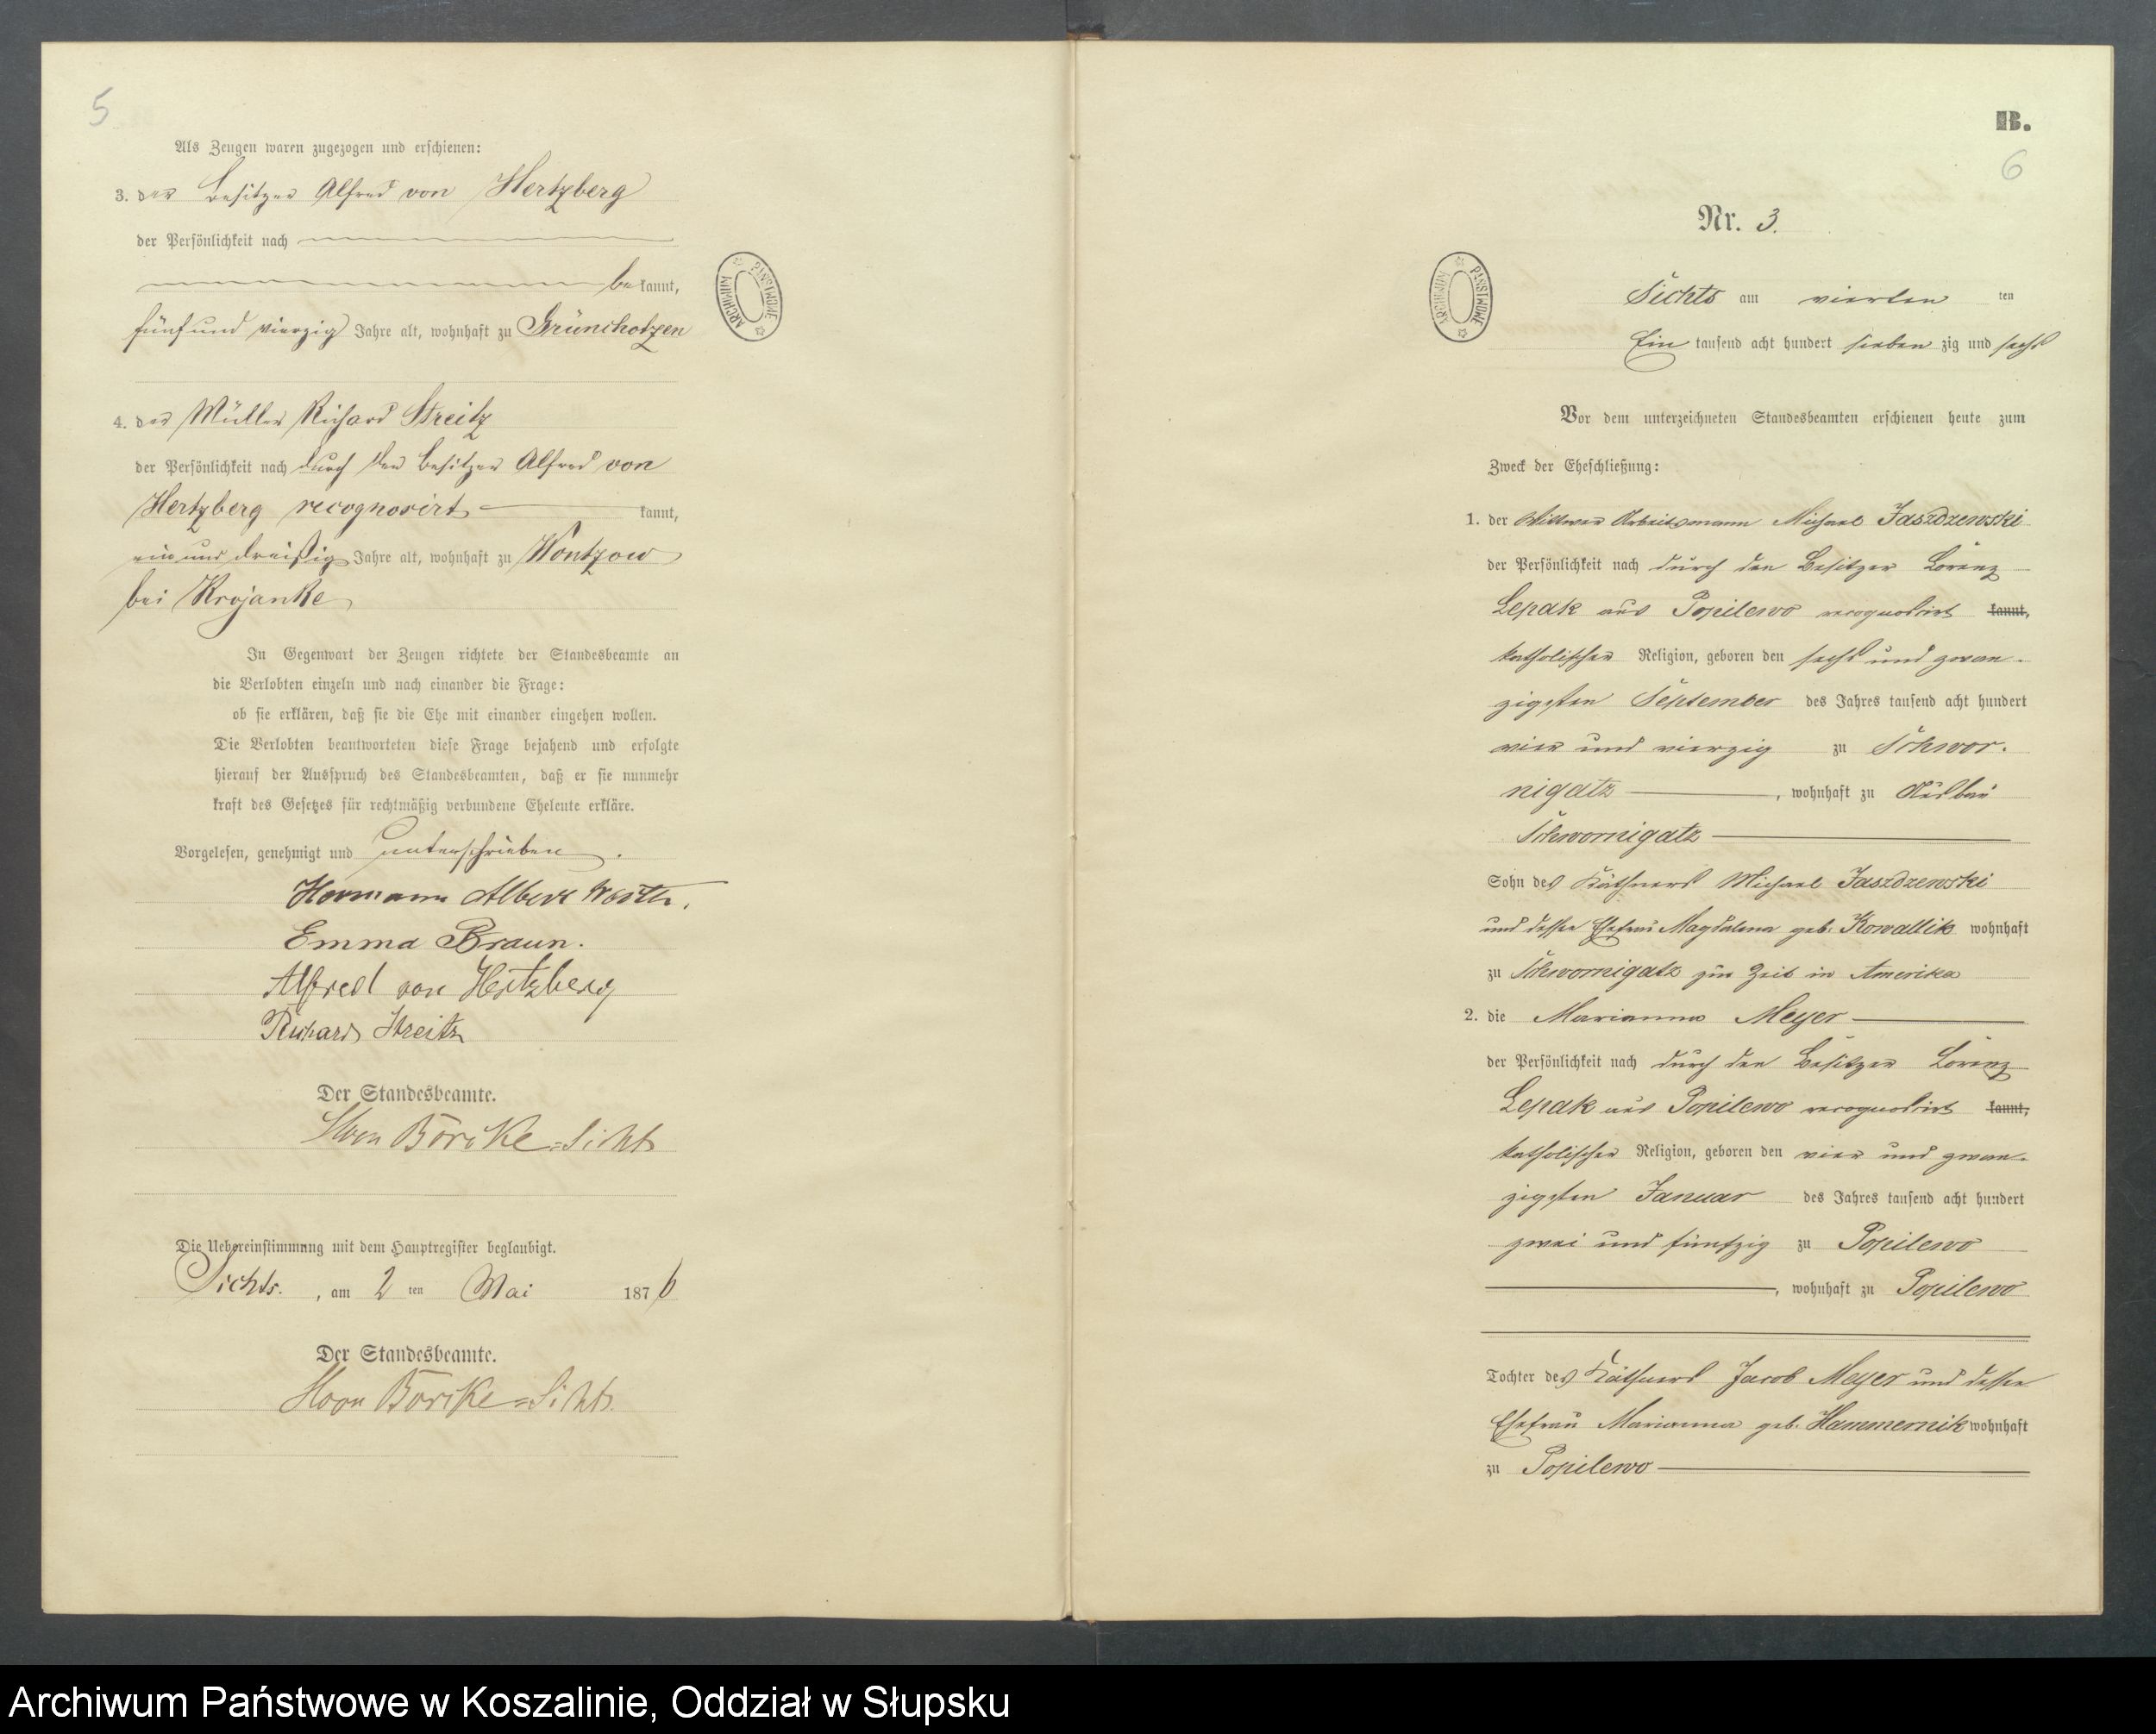 5
Als Zeugen waren zugezogen und erschienen:
3. der Besitzer Alfred von Hertzberg
der Persönlichkeit nach
bekannt,
fünf und vierzig Jahre alt, wohnhaft zu Grünchotzen
4. der Müller Richard Streitz
der Persönlichkeit nach durch den Besitzer Alfred von
Hertzberg recognosirt kannt,
ein und dreißig Jahre alt, wohnhaft zu Wontzow
bei Krojanke
In Gegenwart der Zeugen richtete der Standesbeamte an
die Verlobten einzeln und nach einander die Frage:
ob sie erklären, daß sie die Ehe mit einander eingehen wollen.
Die Verlobten beantworteten diese Frage bejahend und erfolgte
hierauf der Ausspruch des Standesbeamten, daß er sie nunmehr
kraft des Gesetzes für rechtmäßig verbundene Eheleute erkläre.
Vorgelesen, genehmigt und unterschrieben.
Hermann Albert
Emma Braun.
Alfred von Hertzberg
Richard Streitz
Der Standesbeamte.
Die Uebereinstimmung mit dem Hauptregister beglaubigt.
Sichts. , am 2 ten Mai 1876
Der Standesbeamte.
ARCHIWUM PAŃSTWOWE
B.
6
Nr. 3.
ARCHIWUM PAŃSTWOWE
Sichts am vierten ten
Ein tausend acht hundert sieben zig und sechs
Vor dem unterzeichneten Standesbeamten erschienen heute zum
Zweck der Eheschließung:
1. der Wittwer Arbeitsmann Michael Jaszdzewski
der Persönlichkeit nach durch den Besitzer Lorenz
Lepak aus Popilewo recognoscirt kannt,
katholischer Religion, geboren den sechs und zwan-
zigsten September des Jahres tausend acht hundert
vier und vierzig zu Schwor-
nigatz , wohnhaft zu
Schwornigatz
Sohn des Käthners Michael Jaszdzewski
und dessen Ehefrau Magdalena geb. Kowallik wohnhaft
zu Schwornigatz zur Zeit in Amerika
2. die Marianna Meyer
der Persönlichkeit nach durch den Besitzer Lorenz
Lepak aus Popilewo recognoscirt kannt,
katholischer Religion, geboren den vier und zwan-
zigsten Januar des Jahres tausend acht hundert
zwei und fünfzig zu Popilewo
, wohnhaft zu Popilewo
Tochter des Käthners Jacob Meyer und dessen
Ehefrau Marianna geb. Hammernik wohnhaft
zu Popilewo
Archiwum Państwowe w Koszalinie, Oddział w Słupsku